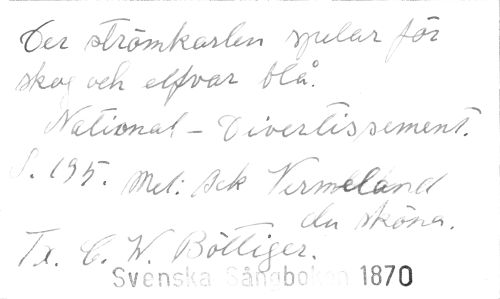 Der strömkarlen spelar för
skog och elfvar blå.
National - Divertissement.
S. 195. Mel: Ack Vermeland
du sköna.
Tx. C. W. Böttiger.
Svenska Sångboken 1870